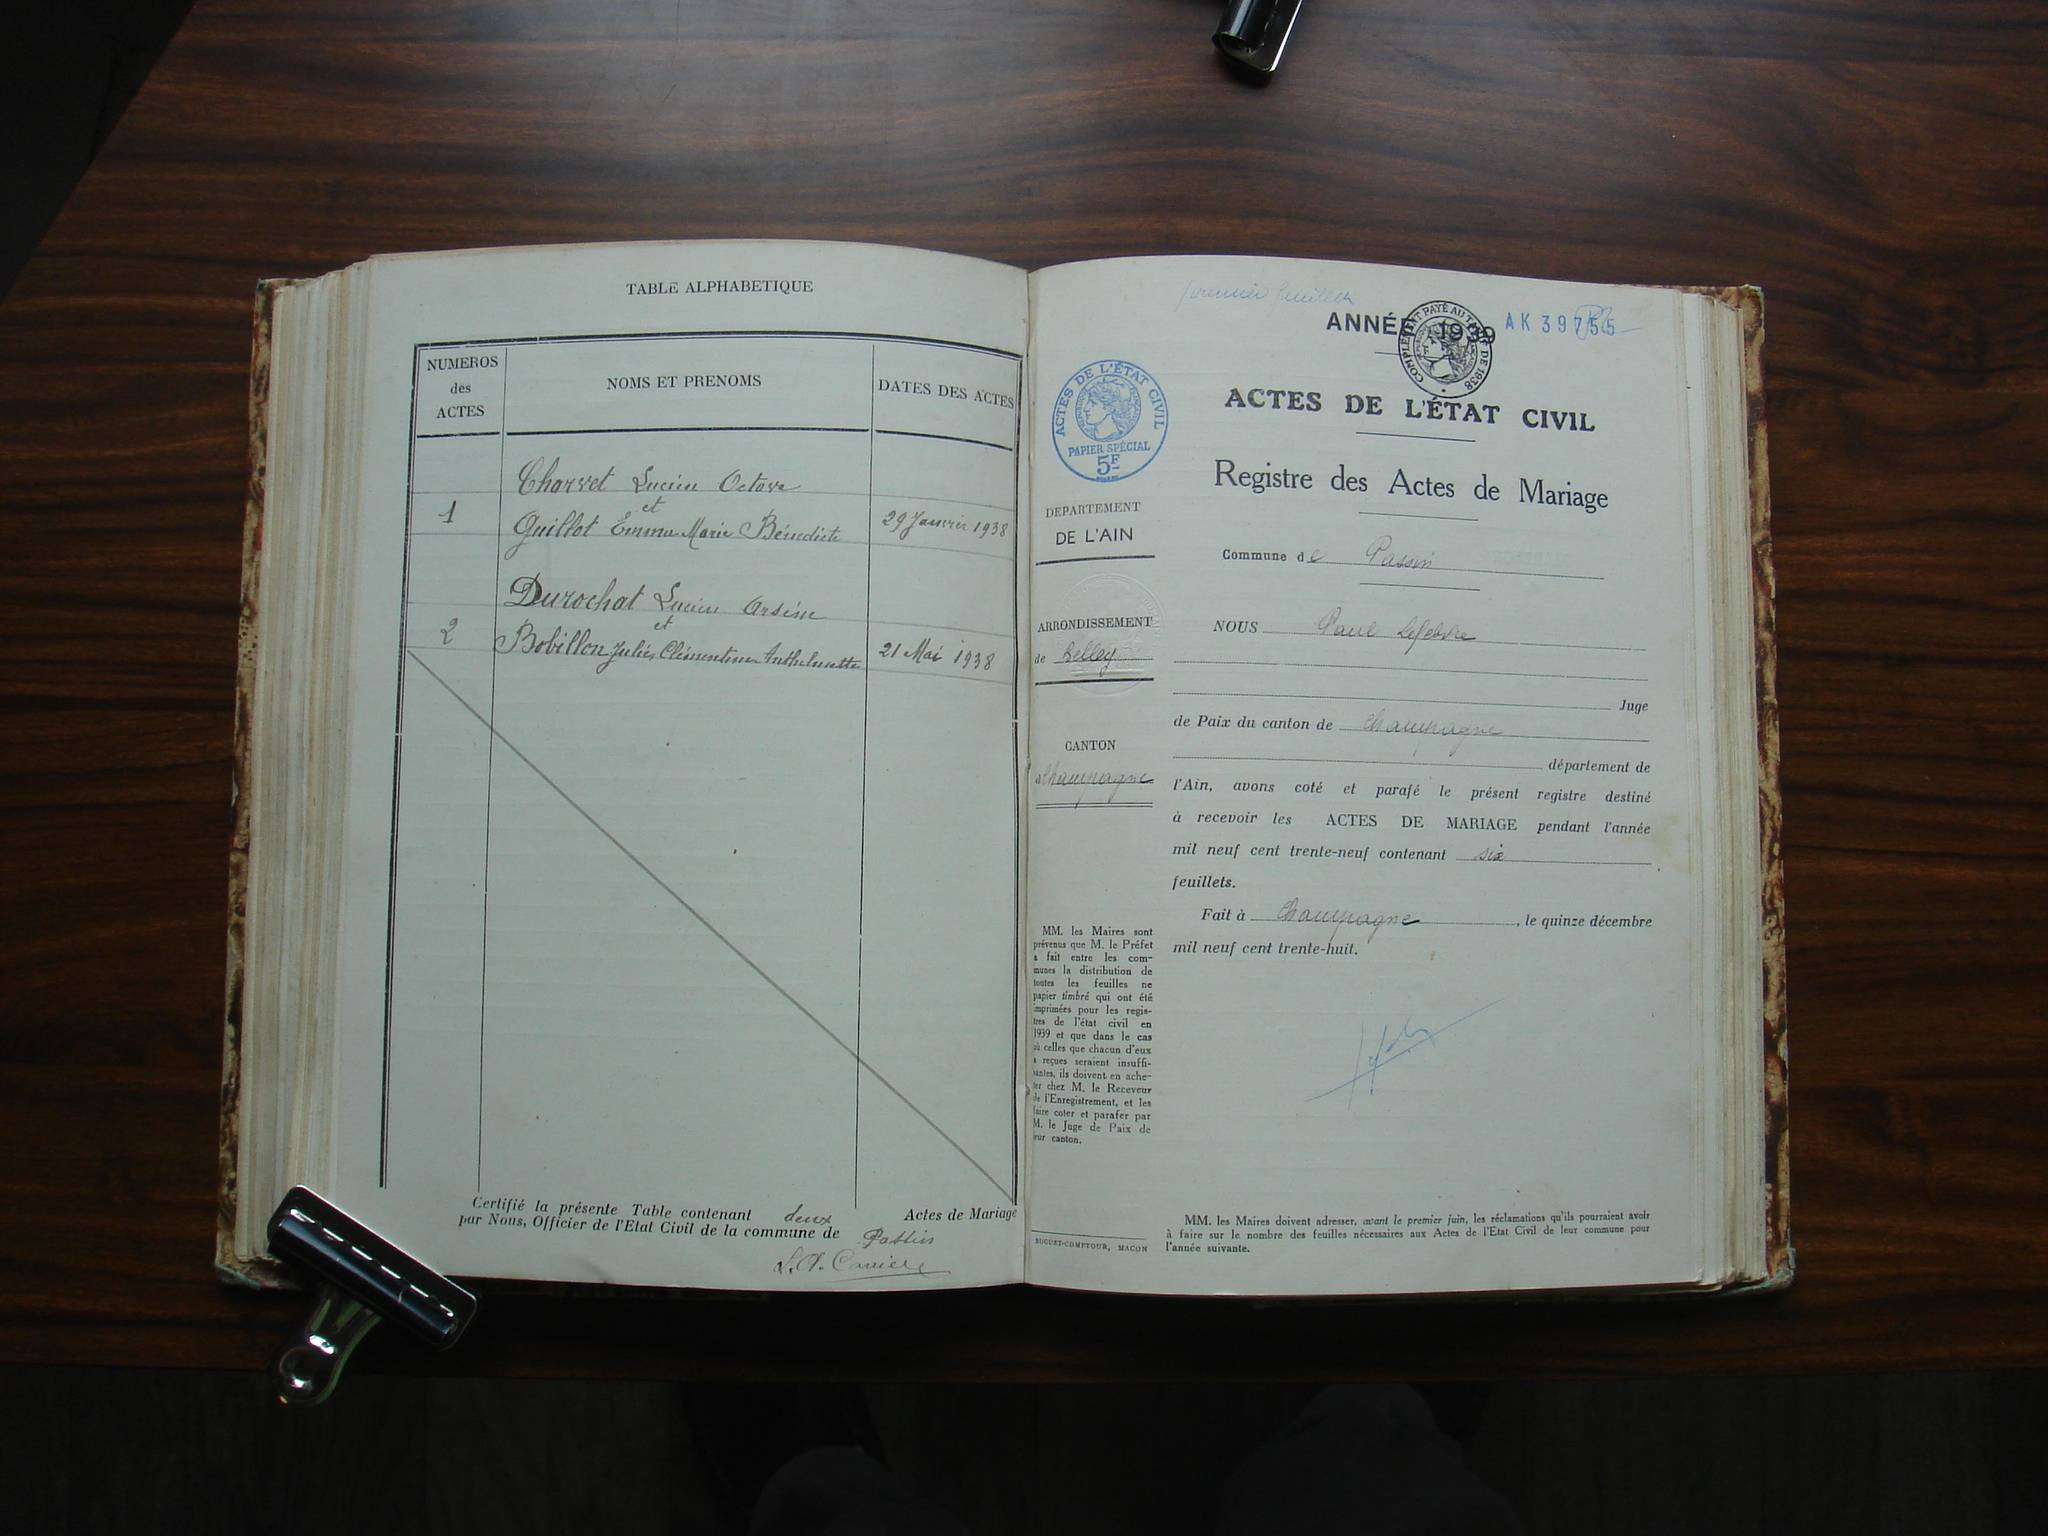 TABLE ALPHABETIQUE
NUMEROS
des
ACTES
NOMS ET PRENOMS
DATES DES ACTES
Charvet Lucien Octave
et
1
Guillot Emma Marie Bénédicte
29 Janvier 1938
Durochat Lucien Arsène
et
2
Bobillon Julie Clémentine Anthelmette
21 Mai 1938
Certifié la présente Table contenant deux Actes de Mariage
par Nous, Officier de l'Etat Civil de la commune de Passin
premier feuillet
ANNÉE 19
AK 39755
COMPLÉMENT PAYÉ AU TARIF DE 1938
ACTES DE L'ÉTAT CIVIL
PAPIER SPÉCIAL
5F
ACTES DE L'ÉTAT CIVIL
Registre des Actes de Mariage
DEPARTEMENT
DE L'AIN
Commune de Passin
ARRONDISSEMENT
de Belley
CANTON
Champagne
NOUS Paul Lefebvre
Juge
de Paix du canton de Champagne
département de
l'Ain, avons coté et parafé le présent registre destiné
à recevoir les ACTES DE MARIAGE pendant l'année
mil neuf cent trente-neuf contenant six
feuillets.
Fait à Champagne, le quinze décembre
mil neuf cent trente-huit.
MM. les Maires sont
prévenus que M. le Préfet
a fait entre les com-
munes la distribution de
toutes les feuilles ne
papier timbré qui ont été
imprimées pour les regis-
tres de l'état civil en
1939 et que dans le cas
où celles que chacun d'eux
a reçues seraient insuffi-
santes, ils doivent en ache-
ter chez M. le Receveur
de l'Enregistrement, et les
faire coter et parafer par
M. le Juge de Paix de
leur canton.
BUGUET-COMPTOUR, MACON
MM. les Maires doivent adresser, avant le premier juin, les réclamations qu'ils pourraient avoir
à faire sur le nombre des feuilles nécessaires aux Actes de l'Etat Civil de leur commune pour
l'année suivante.